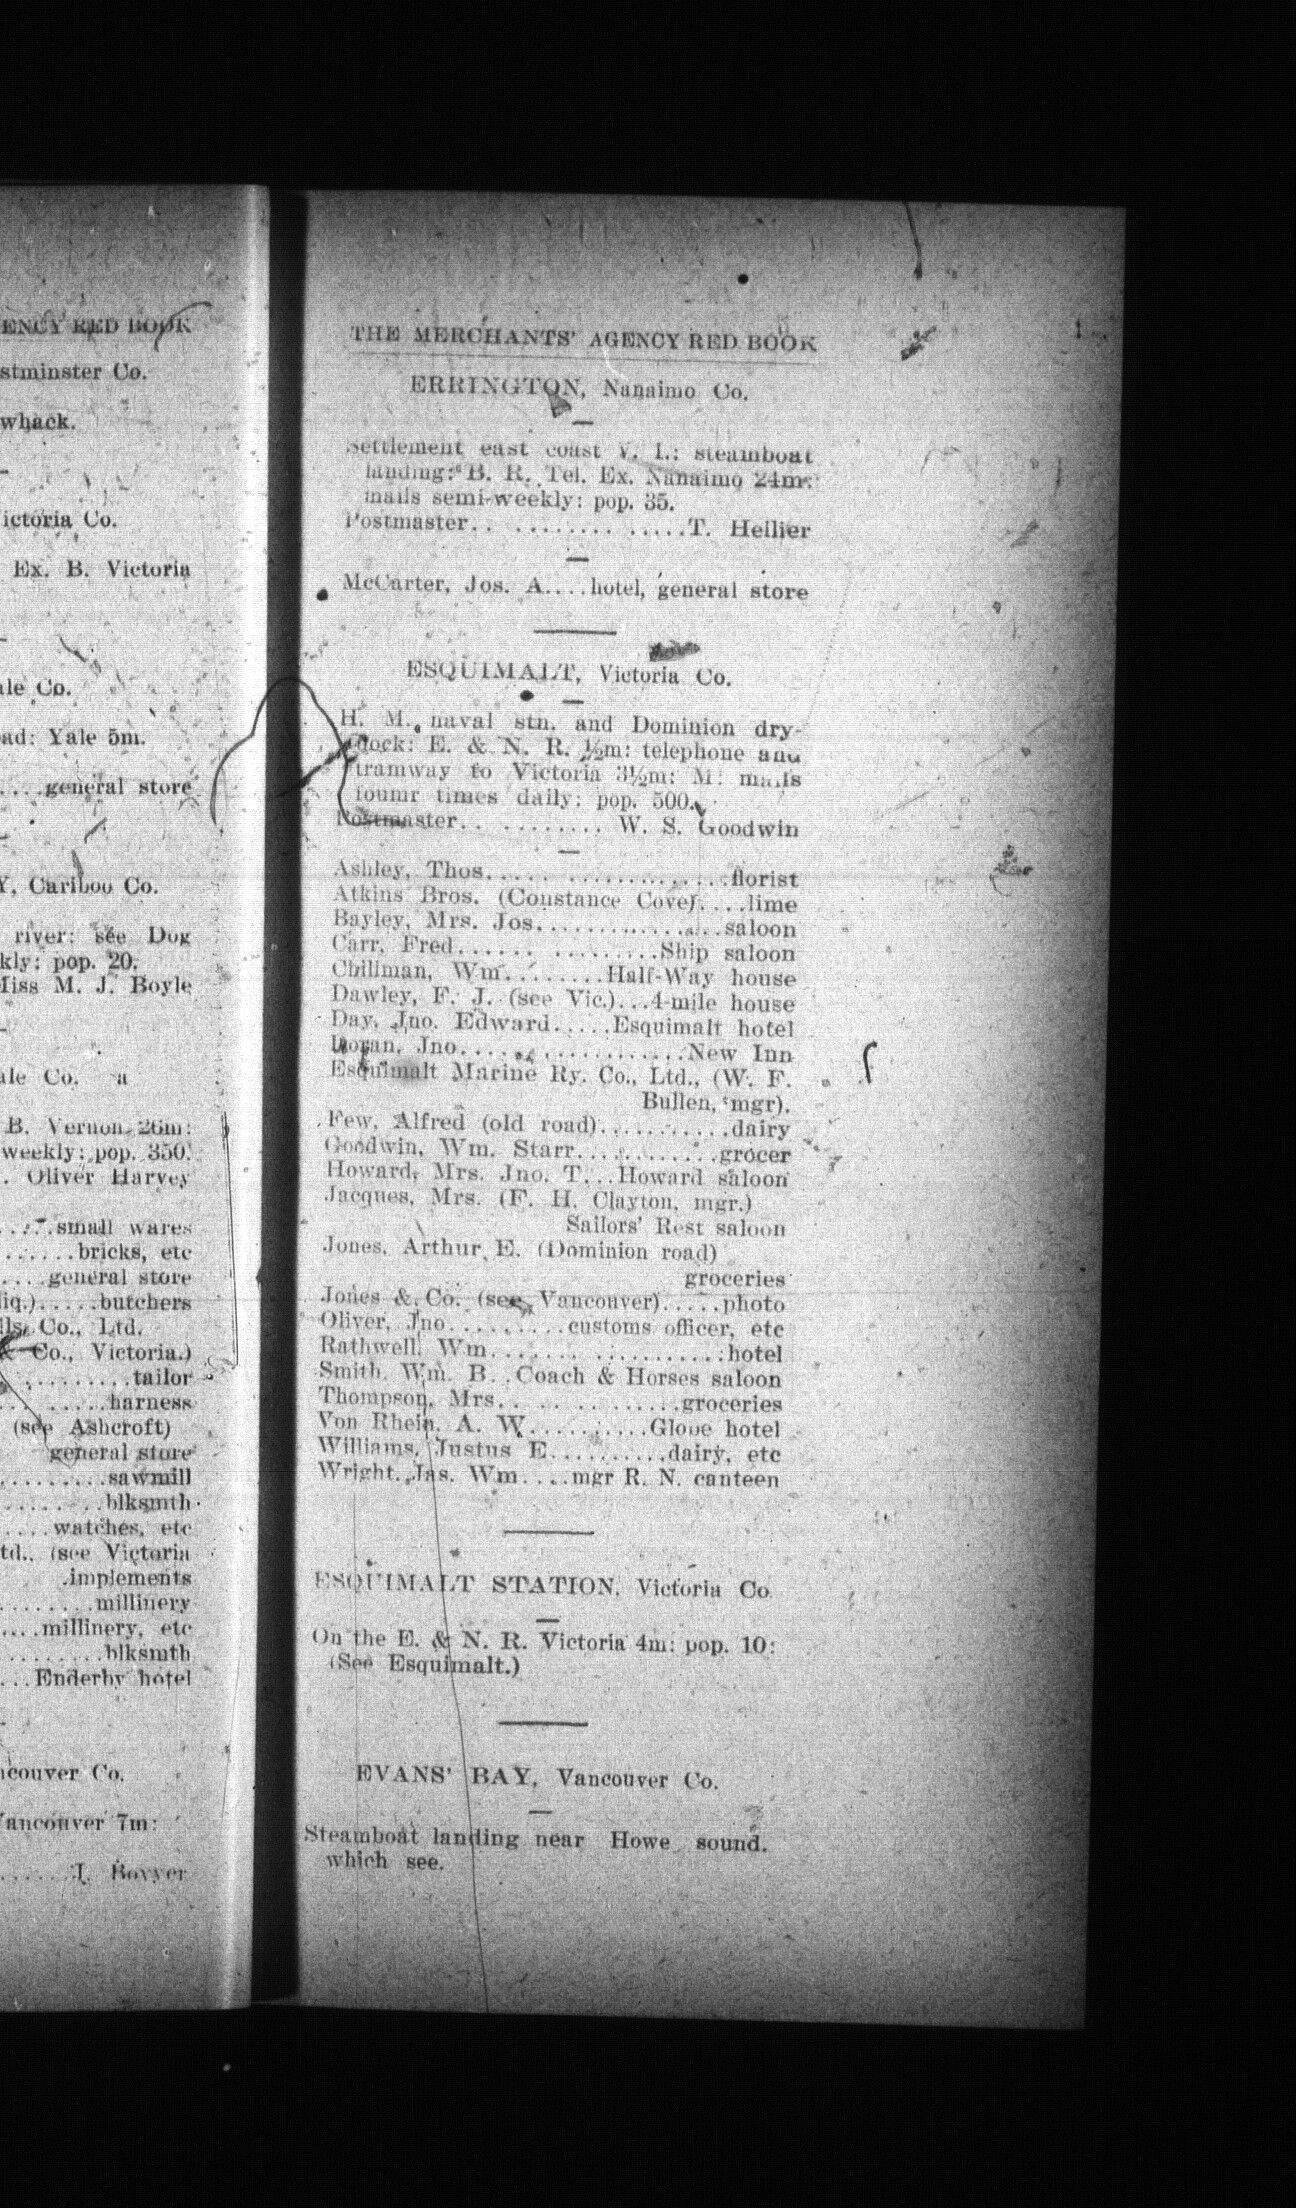 ENCY RED BOOK
stminster Co.
whack.
ictoria Co.
Ex. B. Victoria
ale Co.
ad: Yale 5m.
....general store
Y, Cariboo Co.
river: see Dog
kly: pop. 20.
Miss M. J. Boyle
ale Co.
B. Vernon 26m:
weekly: pop. 350.
. Oliver Harvey
.....small wares
......bricks, etc
....general store
liq.).....butchers
lls Co., Ltd.
& Co., Victoria.)
.........tailor
.. .....harness
(see Ashcroft)
general store
.........sawmill
.........blksmth
....watches, etc
td., (see Victoria
.implements
........millinery
....millinery, etc
.........blksmth
...Enderby hotel
ncouver Co.
Vancouver 7m:
......J. Bovyer
THE MERCHANTS' AGENCY RED BOOK
ERRINGTON, Nanaimo Co.
Settlement east coast V. I.: steamboat
landing: B. R. Tel. Ex. Nanaimo 24m:
mails semi-weekly: pop. 35.
Postmaster.. ............. T. Hellier
McCarter, Jos. A....hotel, general store
ESQUIMALT, Victoria Co.
H. M. naval stn. and Dominion dry-
dock: E. & N. R. ½m: telephone and
tramway to Victoria 3½m: M: mails
foumr times daily: pop. 500.
Postmaster.. ......... W. S. Goodwin
Ashley, Thos.....................florist
Atkins Bros. (Constance Cove)....lime
Bayley, Mrs. Jos................saloon
Carr, Fred...... .........Ship saloon
Chillman, Wm.........Half-Way house
Dawley, F. J. (see Vic.)...4-mile house
Day, Jno. Edward.....Esquimalt hotel
Doran, Jno...................New Inn
Esquimalt Marine Ry. Co., Ltd., (W. F.
Bullen, mgr).
Few, Alfred (old road)...........dairy
Goodwin, Wm. Starr............grocer
Howard, Mrs. Jno. T...Howard saloon
Jacques, Mrs. (F. H. Clayton, mgr.)
Sailors' Rest saloon
Jones, Arthur E. (Dominion road)
groceries
Jones & Co. (see Vancouver).....photo
Oliver, Jno..........customs officer, etc
Rathwell, Wm....................hotel
Smith, Wm. B..Coach & Horses saloon
Thompson, Mrs.. ..............groceries
Von Rhein, A. W...........Globe hotel
Williams, Justus E..........dairy, etc
Wright, Jas. Wm....mgr R. N. canteen
ESQUIMALT STATION, Victoria Co.
On the E. & N. R. Victoria 4m: pop. 10:
(See Esquimalt.)
EVANS' BAY, Vancouver Co.
Steamboat landing near Howe sound.
which see.